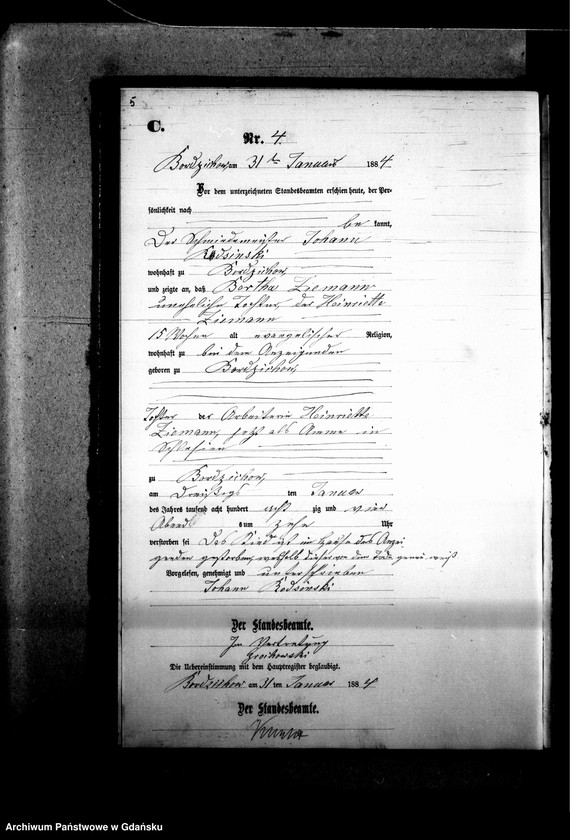 5
C.
Nr. 4.
Bordzichow am 31ten Januar 1884
Vor dem unterzeichneten Standesbeamten erschien heute, der Per-
sönlichkeit nach
bekannt,
Der Schmiedemeister Johann
wohnhaft zu Bordzichow
und zeigte an, daß Bertha Ziemann
uneheliche Tochter der Heinriette
Ziemann
15 Wochen alt evangelischer Religion,
wohnhaft zu bei dem Anzeigenden
geboren zu Bordzichow,
Tochter der Arbeiterin Heinriette
Ziemann, jetzt als Amme in
Schlesien
zu Bordzichow,
am dreißigs ten Januar
des Jahres tausend acht hundert acht zig und vier
Abends um zehn Uhr
verstorben sei Das Kind ist im Hause des Anzei
genden gestorben, weshalb dieser von dem Tode genau weiß
Vorgelesen, genehmigt und unterschrieben
Johann
Der Standesbeamte.
In Vertretung
Die Uebereinstimmung mit dem Hauptregister beglaubigt.
Bordzichow am 31 ten Januar 1884
Der Standesbeamte.
Archiwum Państwowe w Gdańsku